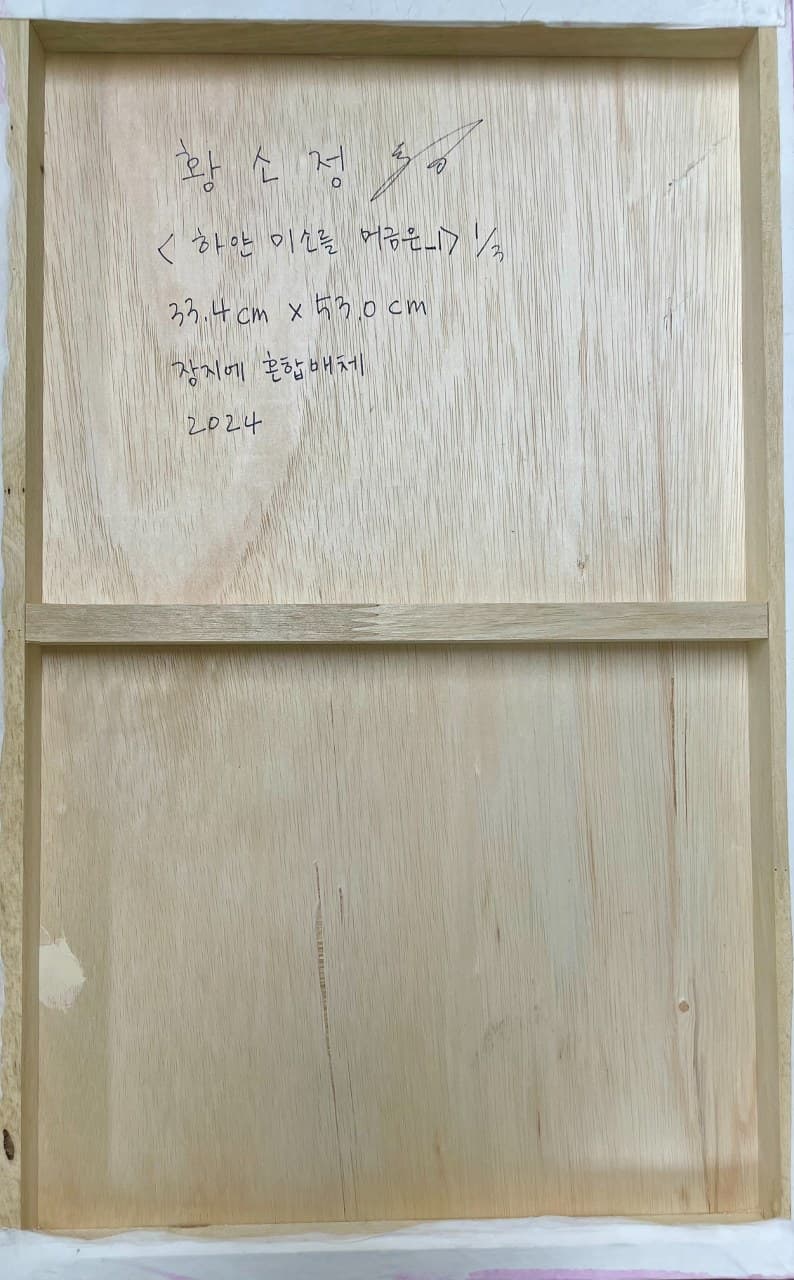 황 소 정
< 하얀 미소를 머금은_1> 1/3
33.4 cm x 53.0 cm
장지에 혼합매체
2024